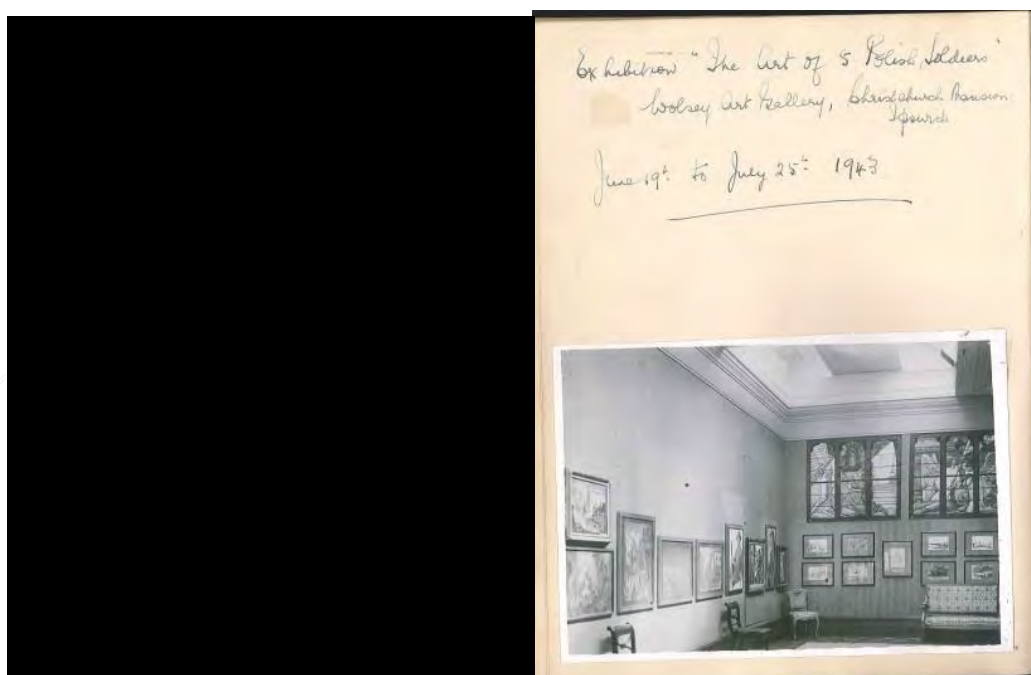 Exhibition "The Art of 5 Polish Soldiers"
Wolsey Art Gallery, Christchurch Mansion
Ipswich
June 19th to July 25th 1943